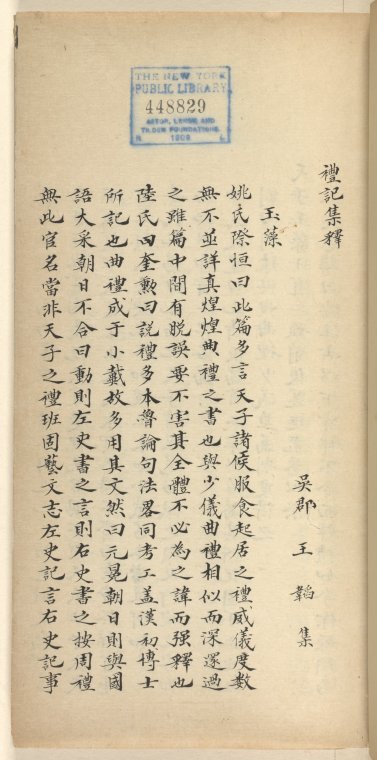 THE NEW YORK
PUBLIC LIBRARY
448829
ASTOR, LENOX AND
TILDEN FOUNDATIONS.
R 1909 L
禮記集釋
吳郡 王韜 集
玉藻
姚氏際恒曰此篇多言天子諸侯服食起居之禮威儀度數
無不並詳真煌煌典禮之書也與少儀曲禮相似而深邃過
之雖篇中間有脱誤要不害其全體不必為之諱而强釋也
陸氏曰奎勲曰説禮多本魯論句法畧同考工盖漢初博士
所記也曲禮成于小戴故多用其文然曰元冕朝日則與國
語大采朝日不合曰動則左史書之言則右史書之按周禮
無此官名當非天子之禮班固藝文志左史記言右史記事